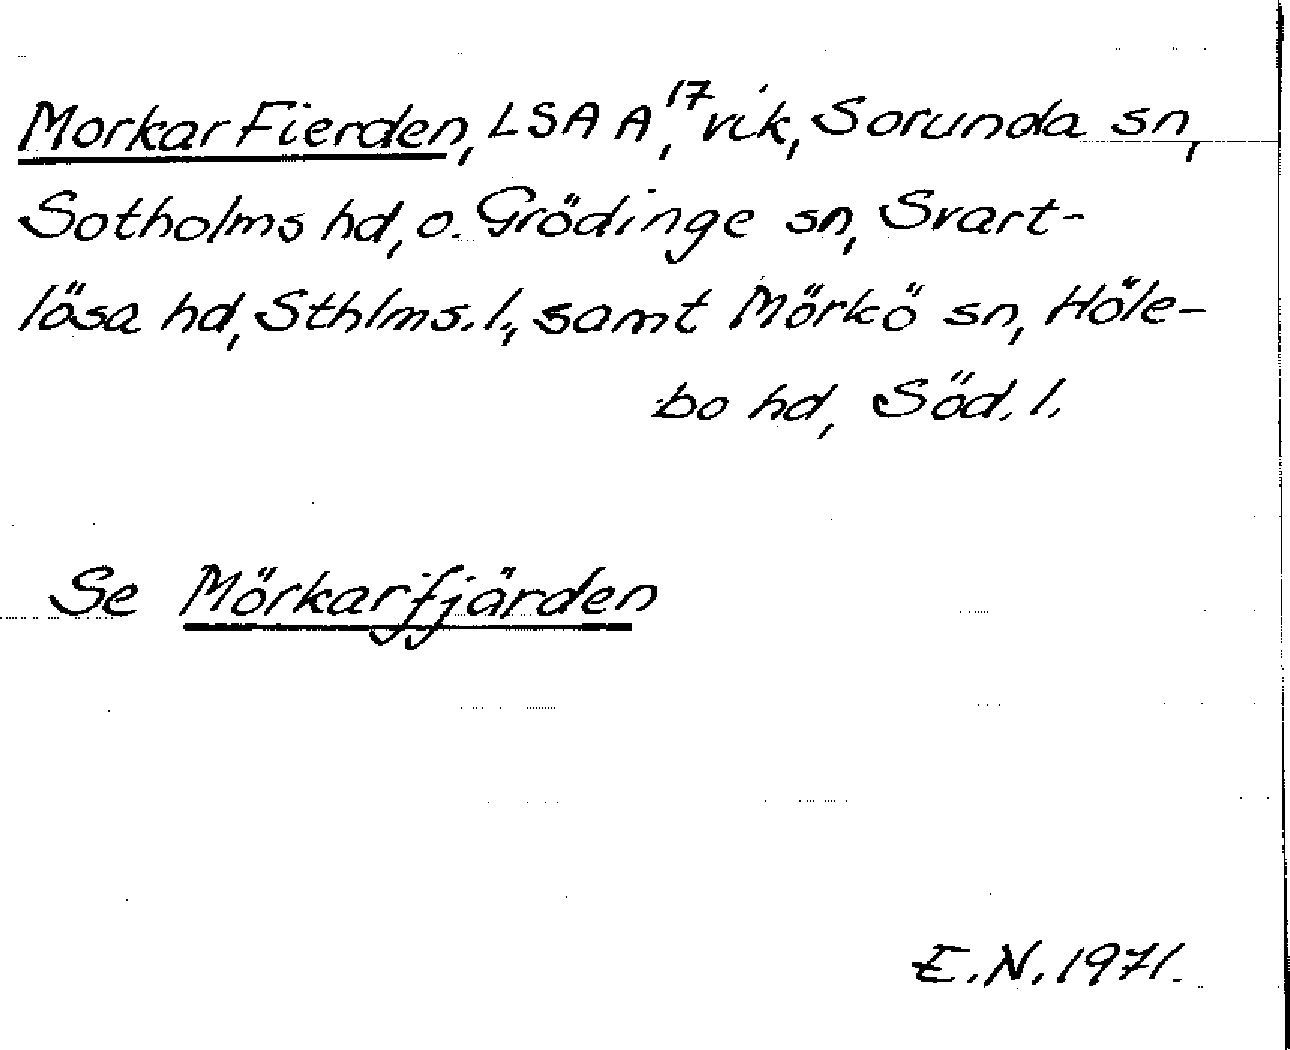 Morkar Fierden, LSA A 17, vik, Sorunda sn,
Sotholms hd, o. Grödinge sn, Svart-
lösa hd, Sthlms. l., samt Mörkö sn, Höle-
bo hd, Söd. l.
Se Mörkarfjärden
E.N. 1971.